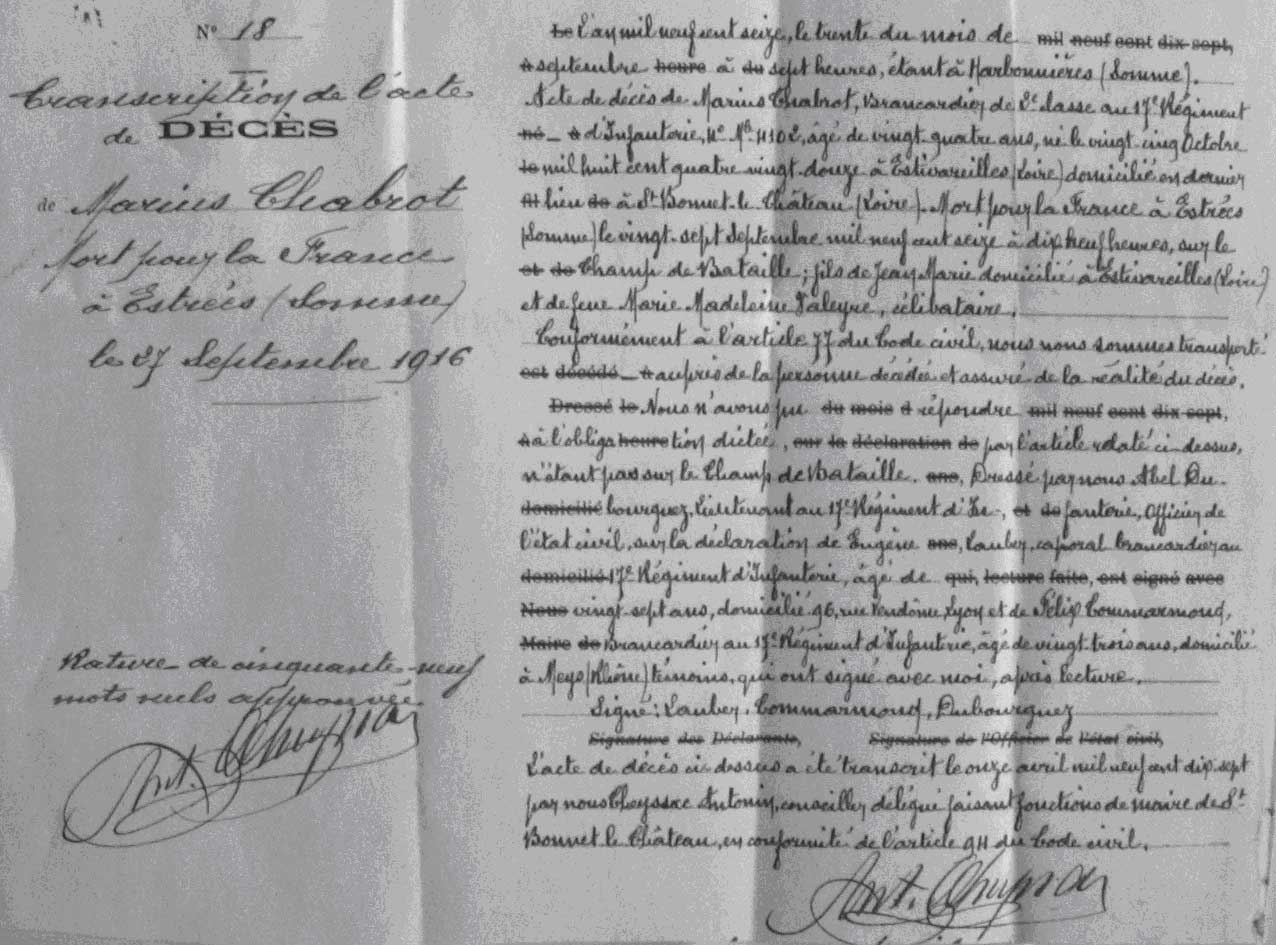 N° 18
Transcription de l'acte
de DÉCÈS
de Marius Chabrot
Mort pour la France
à Estrées (Somme)
le 27 Septembre 1916
Rature de cinquante-neuf
mots nuls approuvée.
Ant. Cheyssac
Le L'an mil neuf cent seize, le trente du mois de mil neuf cent dix-sept,
à septembre heure à du sept heures, étant à Harbonnières (Somme).
Acte de décès de Marius Chabrot, Brancardier de 2e classe au 17e Régiment
né à d'Infanterie, Ne Mle 4102, âgé de vingt-quatre ans, né le vingt-cinq Octobre
le mil huit cent quatre vingt-douze à Estivareilles (Loire) domicilié en dernier
fil lieu de à St Bonnet-le-Château (Loire). Mort pour la France à Estrées
(Somme) le vingt-sept Septembre mil neuf cent seize à dix neuf heures, sur le
et de Champ de Bataille ; fils de Jean Marie domicilié à Estivareilles (Loire)
et de feue Marie Madeleine Valeyre, célibataire.
Conformément à l'article 77 du Code civil, nous nous sommes transporté
est décédé à auprès de la personne décédée et assuré de la réalité du décès.
Dressé le Nous n'avons pu du mois d répondre mil neuf cent dix-sept,
à à l'obliga heure tion dictée, sur la déclaration de par l'article relaté ci-dessus,
n'étant pas sur le Champ de Bataille. ans, Dressé par nous Abel Du-
domicilié bourguez, Lieutenant au 17e Régiment d'In-, et de fanterie, Officier de
l'état civil, sur la déclaration de Eugène ans, Laubey, caporal brancardier au
domicilié 17e Régiment d'Infanterie, âgé de qui, lecture faite, ont signé avec
Nous vingt-sept ans, domicilié 96, rue Vendôme, Lyon et de Félix Commarmond,
Maire de Brancardier au 17e Régiment d'Infanterie, âgé de vingt-trois ans, domicilié
à Meys (Rhône) témoins, qui ont signé avec moi, après lecture.
Signé : Laubey, Commarmond, Dubourguez
Signature des Déclarants, Signature de l'Officier de l'état civil,
L'acte de décès ci-dessus a été transcrit le onze avril mil neuf cent dix-sept
par nous Cheyssac Antonin, conseiller délégué faisant fonctions de maire de St
Bonnet-le-Château, en conformité de l'article 94 du Code civil.
Ant. Cheyssac